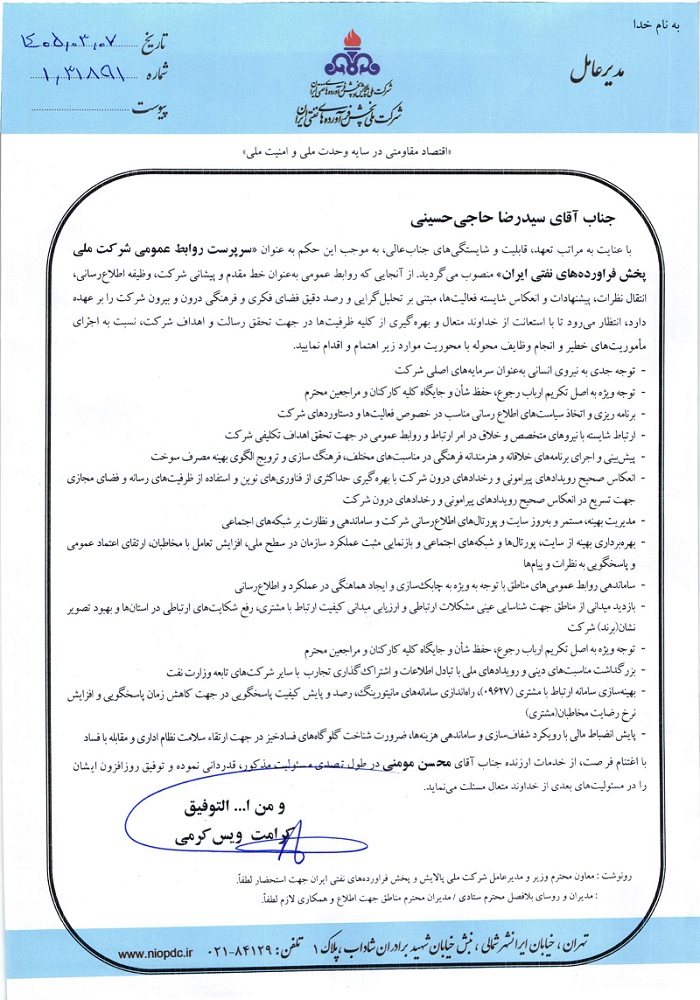 به نام خدا
مدیر عامل
شرکت ملی پالایش و پخش فرآورده‌های نفتی ایران
شرکت ملی پخش فرآورده‌های نفتی ایران
تاریخ ۱۴۰۵,۰۳,۰۷
شماره ۱,۳۱۸۹۱
پیوست
«اقتصاد مقاومتی در سایه وحدت ملی و امنیت ملی»
جناب آقای سیدرضا حاجی‌حسینی
با عنایت به مراتب تعهد، قابلیت و شایستگی‌های جناب‌عالی، به موجب این حکم به عنوان «سرپرست روابط عمومی شرکت ملی
پخش فراورده‌های نفتی ایران» منصوب می‌گردید. از آنجایی که روابط عمومی به‌عنوان خط مقدم و پیشانی شرکت، وظیفه اطلاع‌رسانی،
انتقال نظرات، پیشنهادات و انعکاس شایسته فعالیت‌ها، مبتنی بر تحلیل‌گرایی و رصد دقیق فضای فکری و فرهنگی درون و بیرون شرکت را بر عهده
دارد، انتظار می‌رود تا با استعانت از خداوند متعال و بهره‌گیری از کلیه ظرفیت‌ها در جهت تحقق رسالت و اهداف شرکت، نسبت به اجرای
مأموریت‌های خطیر و انجام وظایف محوله با محوریت موارد زیر اهتمام و اقدام نمایید.
- توجه جدی به نیروی انسانی به‌عنوان سرمایه‌های اصلی شرکت
- توجه ویژه به اصل تکریم ارباب رجوع، حفظ شأن و جایگاه کلیه کارکنان و مراجعین محترم
- برنامه ریزی و اتخاذ سیاست‌های اطلاع رسانی مناسب در خصوص فعالیت‌ها و دستاوردهای شرکت
- ارتباط شایسته با نیروهای متخصص و خلاق در امر ارتباط و روابط عمومی در جهت تحقق اهداف تکلیفی شرکت
- پیش‌بینی و اجرای برنامه‌های خلاقانه و هنرمندانه فرهنگی در مناسبت‌های مختلف، فرهنگ سازی و ترویج الگوی بهینه مصرف سوخت
- انعکاس صحیح رویدادهای پیرامونی و رخدادهای درون شرکت با بهره‌گیری حداکثری از فناوری‌های نوین و استفاده از ظرفیت‌های رسانه و فضای مجازی
جهت تسریع در انعکاس صحیح رویدادهای پیرامونی و رخدادهای درون شرکت
- مدیریت بهینه، مستمر و به‌روز سایت و پورتال‌های اطلاع‌رسانی شرکت و ساماندهی و نظارت بر شبکه‌های اجتماعی
- بهره‌برداری بهینه از سایت، پورتال‌ها و شبکه‌های اجتماعی و بازنمایی مثبت عملکرد سازمان در سطح ملی، افزایش تعامل با مخاطبان، ارتقای اعتماد عمومی
و پاسخگویی به نظرات و پیام‌ها
- ساماندهی روابط عمومی‌های مناطق با توجه به ویژه به چابک‌سازی و ایجاد هماهنگی در عملکرد و اطلاع‌رسانی
- بازدید میدانی از مناطق جهت شناسایی عینی مشکلات ارتباطی و ارزیابی میدانی کیفیت ارتباط با مشتری، رفع شکایت‌های ارتباطی در استان‌ها و بهبود تصویر
نشان(برند) شرکت
- توجه ویژه به اصل تکریم ارباب رجوع، حفظ شأن و جایگاه کلیه کارکنان و مراجعین محترم
- بزرگداشت مناسبت‌های دینی و رویدادهای ملی با تبادل اطلاعات و اشتراک‌گذاری تجارب با سایر شرکت‌های تابعه وزارت نفت
- بهینه‌سازی سامانه ارتباط با مشتری (۰۹۶۲۷)، راه‌اندازی سامانه‌های مانیتورینگ، رصد و پایش کیفیت پاسخگویی در جهت کاهش زمان پاسخگویی و افزایش
نرخ رضایت مخاطبان(مشتری)
- پایش انضباط مالی با رویکرد شفاف‌سازی و ساماندهی هزینه‌ها، ضرورت شناخت گلوگاه‌های فسادخیز در جهت ارتقاء سلامت نظام اداری و مقابله با فساد
با اغتنام فرصت، از خدمات ارزنده جناب آقای محسن مومنی در طول تصدی مسئولیت مذکور، قدردانی نموده و توفیق روزافزون ایشان
را در مسئولیت‌های بعدی از خداوند متعال مسئلت می‌نماید.
و من ا... التوفیق
کرامت ویس‌کرمی
رونوشت : معاون محترم وزیر و مدیرعامل شرکت ملی پالایش و پخش فراورده‌های نفتی ایران جهت استحضار لطفاً.
: مدیران و روسای بلافصل محترم ستادی / مدیران محترم مناطق جهت اطلاع و همکاری لازم لطفاً.
تهران ، خیابان ایرانشهر شمالی ، نبش خیابان شهید برادران شاداب ، پلاک ۱ تلفن: ۸۴۱۲۹-۰۲۱ www.niopdc.ir